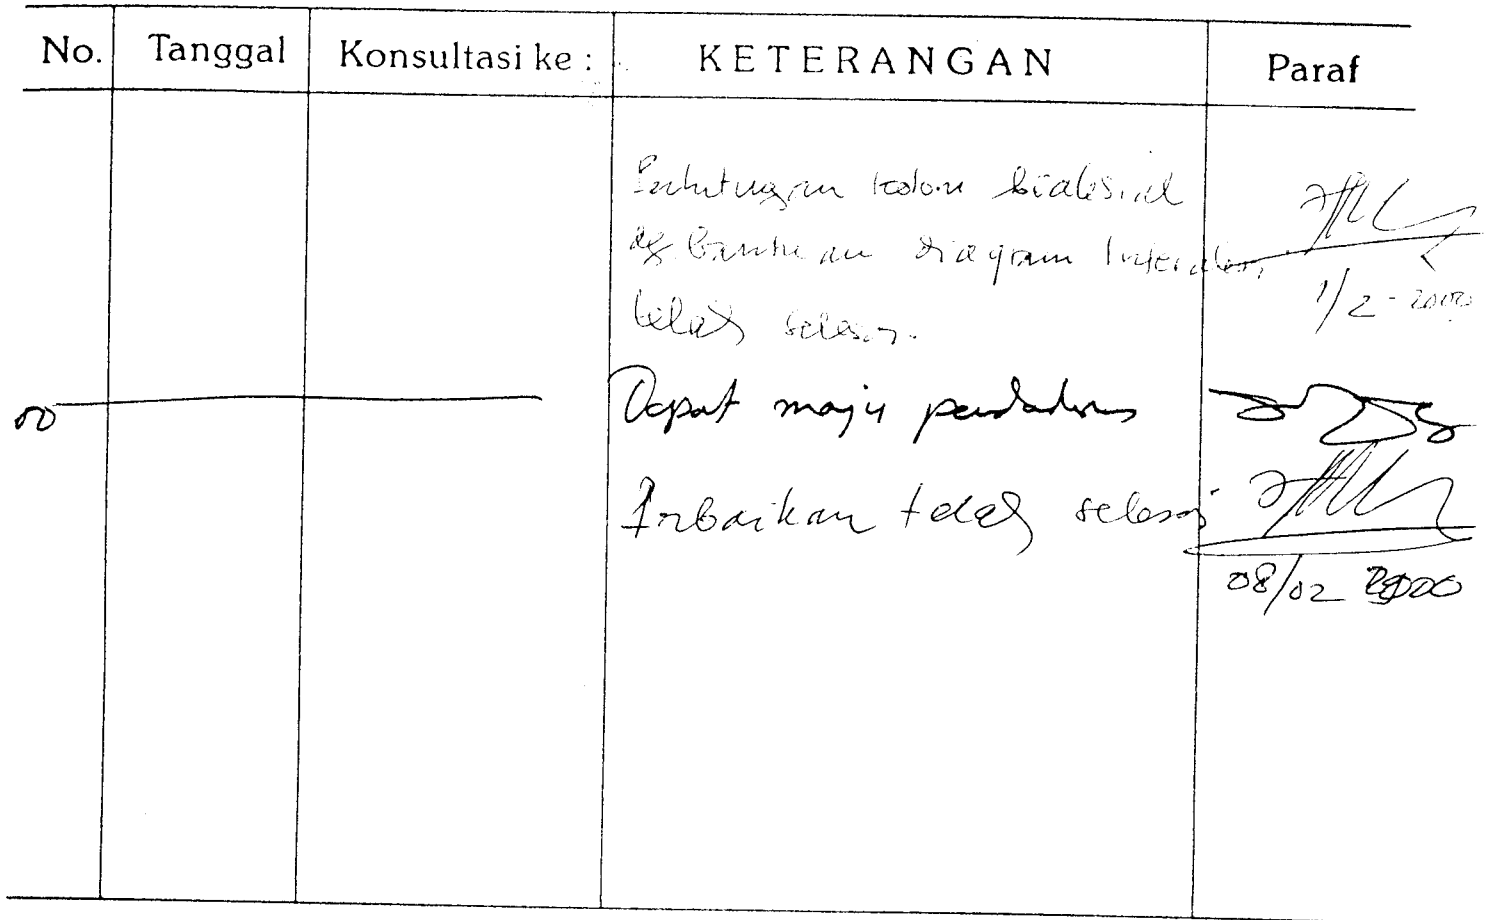 No. Tanggal Konsultasi ke : KETERANGAN Paraf
Perhitungan kolom biaksial
dg bantuan diagram Interaksi
telah selesai.
1/2-2000
Dapat maju pendadaran
Perbaikan telah selesai
08/02 2000